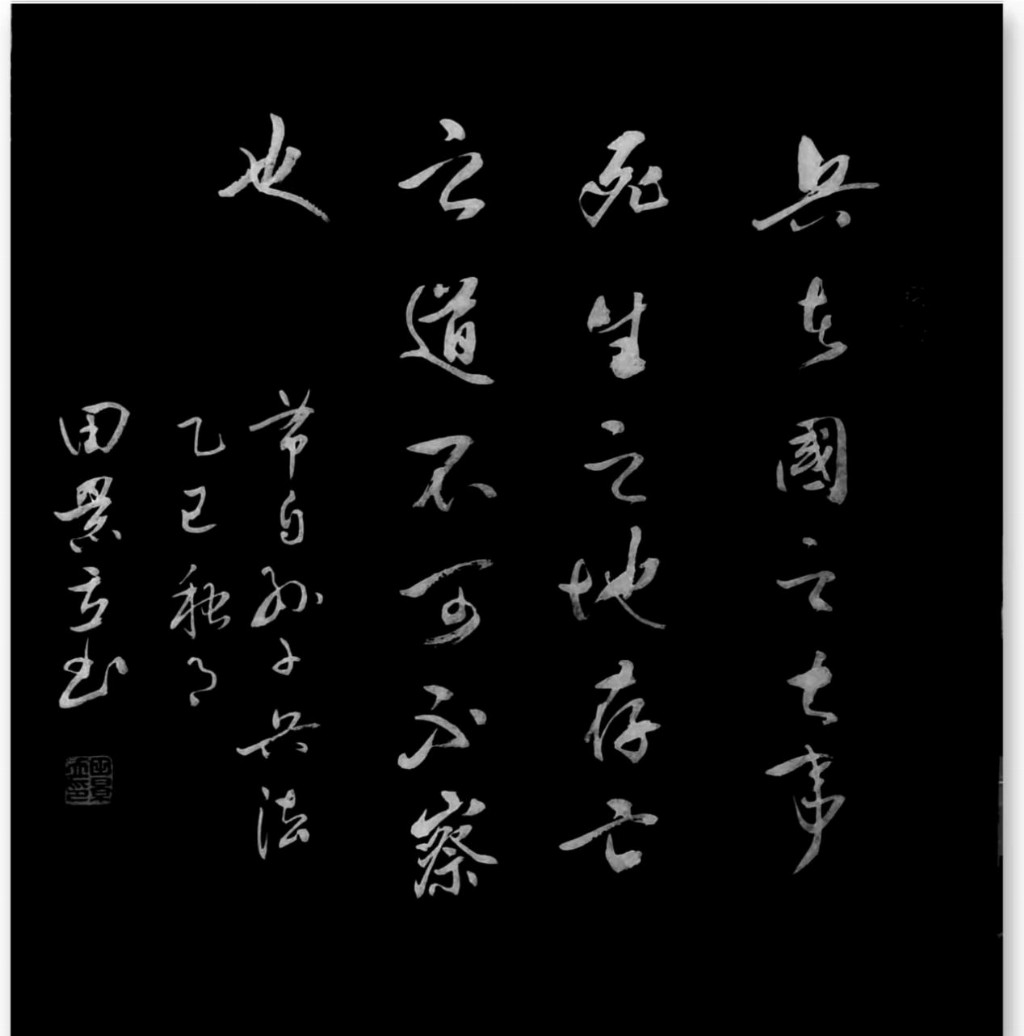 兵者國之大事
死生之地存亡
之道不可不察
也
節自孫子兵法
乙巳秋月
田景书